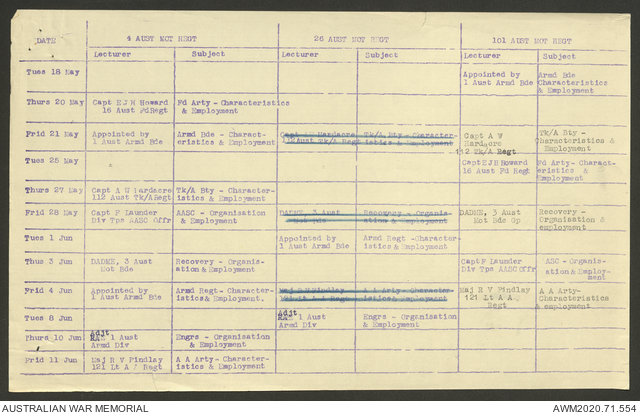 DATE 4 AUST MOT REGT 26 AUST MOT REGT 101 AUST MOT REGT
Lecturer Subject Lecturer Subject Lecturer Subject
Tues 18 May Appointed by Armd Bde
1 Aust Armd Bde Characteristics
& Employment
Thurs 20 May Capt E J H Howard Fd Arty - Characteristics
16 Aust Fd Regt & Employment
Fri 21 May Appointed by Armd Bde - Charact- Capt A W Hardacre Tk/A Bty - Character- Capt A W Tk/A Bty -
1 Aust Armd Bde eristics & Employment 112 Aust Tk/A Regt istics & Employment Hardacre Characteristics &
112 Tk/A Regt Employment
Tues 25 May Capt E J H Howard Fd Arty - Charact-
16 Aust Fd Regt eristics &
Employment
Thurs 27 May Capt A W Hardacre Tk/A Bty - Character-
112 Aust Tk/A Regt istics & Employment
Fri 28 May Capt F Launder AASC - Organisation DADME, 3 Aust Recovery - Organis- DADME, 3 Aust Recovery -
Div Tps AASC Offr & Employment Mot Bde ation & Employment Mot Bde Gp Organisation &
employment
Tues 1 Jun Appointed by Armd Regt - Character-
1 Aust Armd Bde istics & Employment
Thus 3 Jun DADME, 3 Aust Recovery - Organis- Capt F Launder ASC - Organis-
Mot Bde ation & Employment Div Tps AASC Offr ation & Employ-
ment
Fri 4 Jun Appointed by Armd Regt - Character- Maj R V Findlay A A Arty - Character- Maj R V Findlay A A Arty-
1 Aust Armd Bde istics & Employment. 121 Lt A A Regt istics & Employment 121 Lt A A Characteristics
Regt & employment
Tues 8 Jun Adjt 1 Aust Engrs - Organisation
Armd Div & Employment
Thurs 10 Jun Adjt 1 Aust Engrs - Organisation
Armd Div & Employment
Frid 11 Jun Maj R V Findlay A A Arty - Character-
121 Lt A A Regt istics & Employment
AUSTRALIAN WAR MEMORIAL AWM2020.71.554